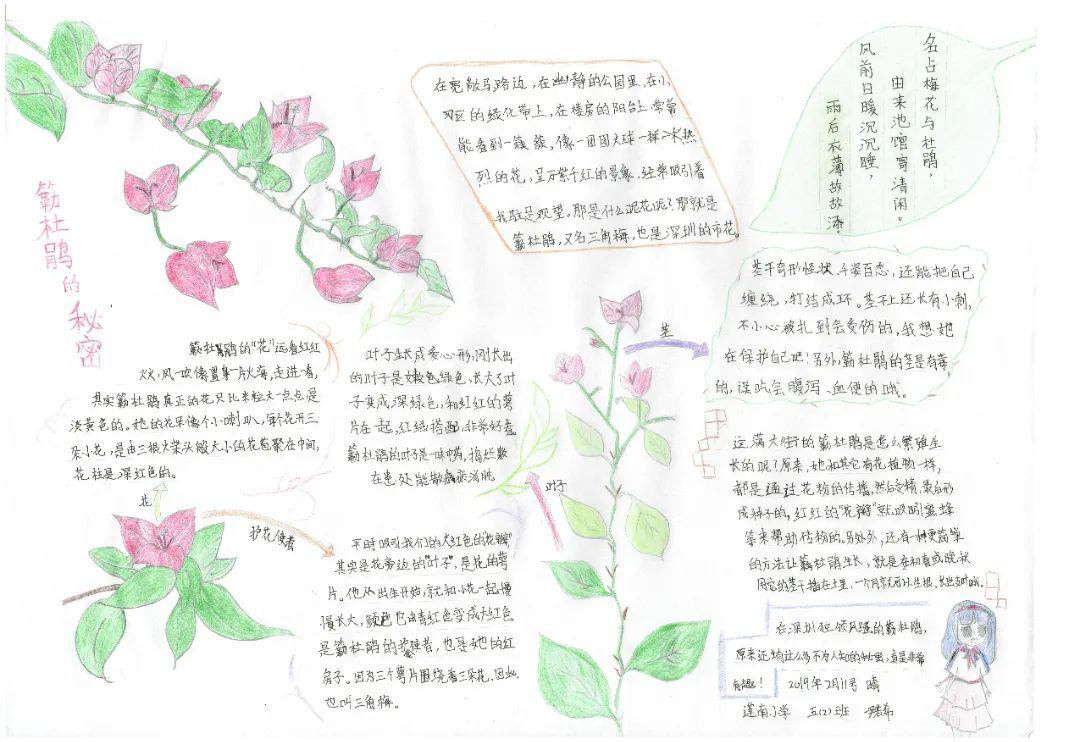 簕杜鹃的秘密
在宽敞马路边,在幽静的公园里,在小
区的绿化带上,在楼房的阳台上,常常
能看到一簇簇,像一团团火球一样火热
烈的花,呈万紫千红的景象,经常吸引着
我驻足观望。那是什么呢花呢?那就是
簕杜鹃,又名三角梅,也是深圳的市花。
名占梅花与杜鹃,
由来池馆寄清闲。
风前日暖沉沉睡,
雨后衣薄故故添。
簕杜鹃的“花”远看红红
火火,风一吹像置身一片火海,走进一看,
其实簕杜鹃真正的花只比米粒大一点点是
淡黄色的。她的花朵像个小喇叭,
朵小花,是由三根火柴头般大小的花苞聚在中间,
花柱是深红色的。
花
护花使者
叶子生长成爱心形,刚长出
的叶子是嫩绿色,长大了叶
子变成深绿色,和红红的萼
片在一起,红绿搭配,非常好看
簕杜鹃的叶子是一味中药,捣烂敷
在患处能散瘀消肿
平时吸引我们的大红色的“花瓣”
其实是花旁边的“叶子”,是花的萼
片。他从出生开始,就和小花一起慢
慢长大,颜色也由青红色变成大红色
是簕杜鹃的护花使者,也是她的红
房子。因为三个萼片围绕着三朵花,因此
也叫三角梅。
茎
叶子
茎干奇形怪状,千姿百态,还能把自己
缠绕,打结成环。茎干上还长有小刺,
不小心被扎到会受伤的,我想她
在保护自己吧!另外,簕杜鹃的茎是有毒
的,误吃会腹泻、血便的哦。
这满大街的簕杜鹃是怎么繁殖生
长的呢?原来,她和其它有花植物一样,
都是通过花粉的传播,然后受精,最后形
成种子的,红红的“花瓣”就吸引蜜蜂
等来帮助传粉的。另外,还有一种更简单
的方法让簕杜鹃生长,就是在初春或晚秋
用它的茎干插在土里,一个月就可以生根,长出支叶哦。
在深圳独领风骚的簕杜鹃,
原来还有这么多不为人知的秘密,真是非常
有趣!2019年2月11号 晴
莲南小学 五(2)班